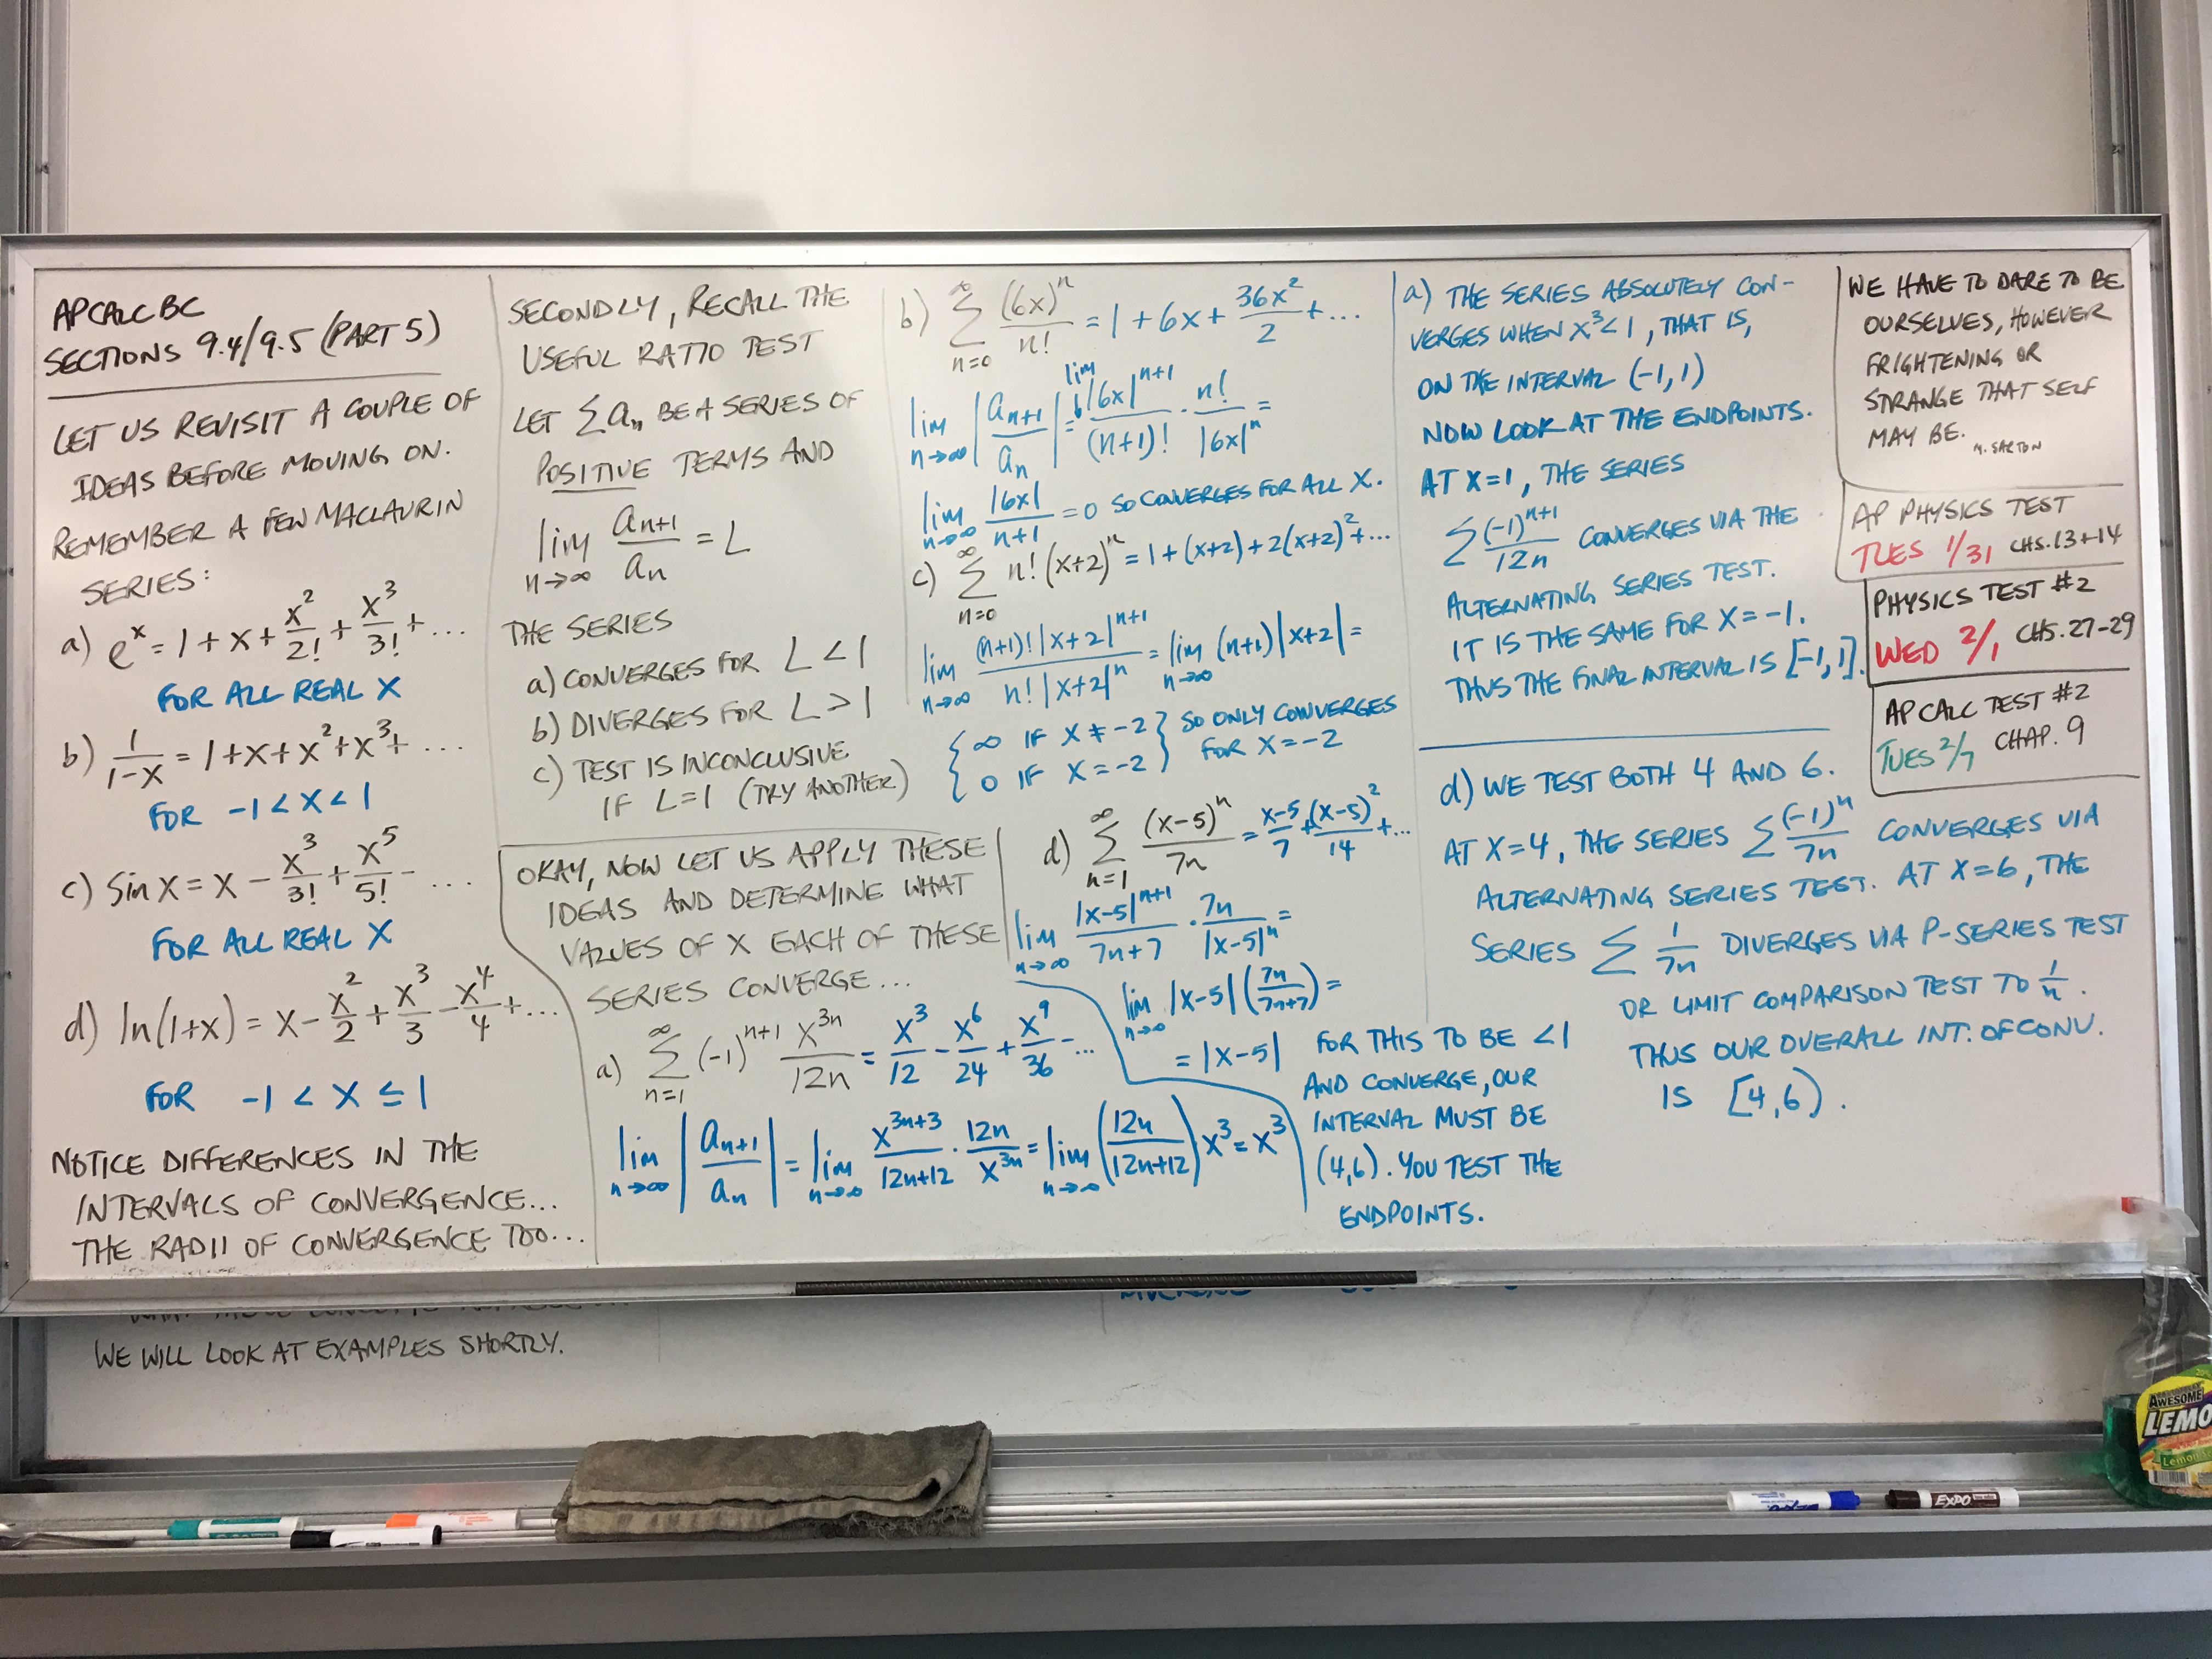 AP CALC BC
SECTIONS 9.4/9.5 (PART 5)
LET US REVISIT A COUPLE OF
IDEAS BEFORE MOVING ON.
REMEMBER A FEW MACLAURIN
SERIES:
a) e^x = 1 + x + x^2/2! + x^3/3! + ...
FOR ALL REAL X
b) 1/(1-x) = 1 + x + x^2 + x^3 + ...
FOR -1 < X < 1
c) sin x = x - x^3/3! + x^5/5! - ...
FOR ALL REAL X
d) ln(1+x) = x - x^2/2 + x^3/3 - x^4/4 + ...
FOR -1 < X ≤ 1
NOTICE DIFFERENCES IN THE
INTERVALS OF CONVERGENCE...
THE RADII OF CONVERGENCE TOO...
SECONDLY, RECALL THE
USEFUL RATIO TEST
LET Σ a_n BE A SERIES OF
POSITIVE TERMS AND
lim n→∞ a_{n+1}/a_n = L
THE SERIES
a) CONVERGES FOR L < 1
b) DIVERGES FOR L > 1
c) TEST IS INCONCLUSIVE
IF L=1 (TRY ANOTHER)
OKAY, NOW LET US APPLY THESE
IDEAS AND DETERMINE WHAT
VALUES OF X EACH OF THESE
SERIES CONVERGE...
a) Σ n=1 ∞ (-1)^{n+1} x^{3n}/12n = x^3/12 - x^6/24 + x^9/36 - ...
lim n→∞ |a_{n+1}/a_n| = lim n→∞ x^{3n+3}/(12n+12) · 12n/x^{3n} = lim n→∞ (12n/(12n+12)) x^3 = x^3
b) Σ n=0 ∞ (6x)^n/n! = 1 + 6x + 36x^2/2 + ...
lim n→∞ |a_{n+1}/a_n| = lim |6x|^{n+1}/(n+1)! · n!/|6x|^n =
lim n→∞ |6x|/(n+1) = 0 SO CONVERGES FOR ALL X.
c) Σ n=0 ∞ n! (x+2)^n = 1 + (x+2) + 2(x+2)^2 + ...
lim n→∞ (n+1)! |x+2|^{n+1}/(n! |x+2|^n) = lim n→∞ (n+1)|x+2| =
{ ∞ IF X ≠ -2 } SO ONLY CONVERGES
{ 0 IF X = -2 } FOR X = -2
d) Σ n=1 ∞ (x-5)^n/7n = (x-5)/7 + (x-5)^2/14 + ...
lim n→∞ |x-5|^{n+1}/(7n+7) · 7n/|x-5|^n =
lim n→∞ |x-5| (7n/(7n+7)) =
= |x-5|
FOR THIS TO BE < 1
AND CONVERGE, OUR
INTERVAL MUST BE
(4,6). YOU TEST THE
ENDPOINTS.
a) THE SERIES ABSOLUTELY CON-
VERGES WHEN X^3 < 1, THAT IS,
ON THE INTERVAL (-1,1)
NOW LOOK AT THE ENDPOINTS.
AT X=1, THE SERIES
Σ (-1)^{n+1}/12n CONVERGES VIA THE
ALTERNATING SERIES TEST.
IT IS THE SAME FOR X = -1.
THUS THE FINAL INTERVAL IS [-1,1].
d) WE TEST BOTH 4 AND 6.
AT X=4, THE SERIES Σ (-1)^n/7n CONVERGES VIA
ALTERNATING SERIES TEST. AT X=6, THE
SERIES Σ 1/7n DIVERGES VIA P-SERIES TEST
OR LIMIT COMPARISON TEST TO 1/n.
THUS OUR OVERALL INT. OF CONV.
IS [4,6).
WE HAVE TO DARE TO BE
OURSELVES, HOWEVER
FRIGHTENING OR
STRANGE THAT SELF
MAY BE.
M. SARTON
AP PHYSICS TEST
TUES 1/31 CHS. 13+14
PHYSICS TEST #2
WED 2/1 CHS. 27-29
AP CALC TEST #2
TUES 2/7 CHAP. 9
WE WILL LOOK AT EXAMPLES SHORTLY.
EXPO
AWESOME
LEMO
Lemon